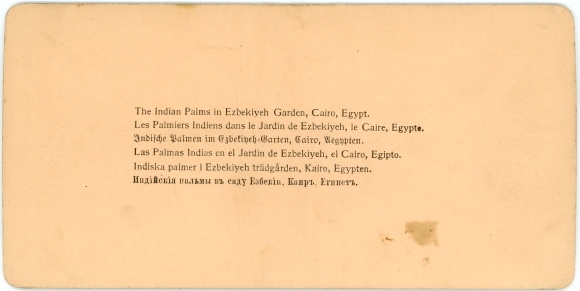 The Indian Palms in Ezbekiyeh Garden, Cairo, Egypt.
Les Palmiers Indiens dans le Jardin de Ezbekiyeh, le Caire, Egypte.
Indische Palmen im Ezbekiyeh-Garten, Cairo, Aegypten.
Las Palmas Indias en el Jardin de Ezbekiyeh, el Cairo, Egipto.
Indiska palmer i Ezbekiyeh trädgården, Kairo, Egypten.
Индійскія пальмы въ саду Езбекіи, Каиръ, Египетъ.